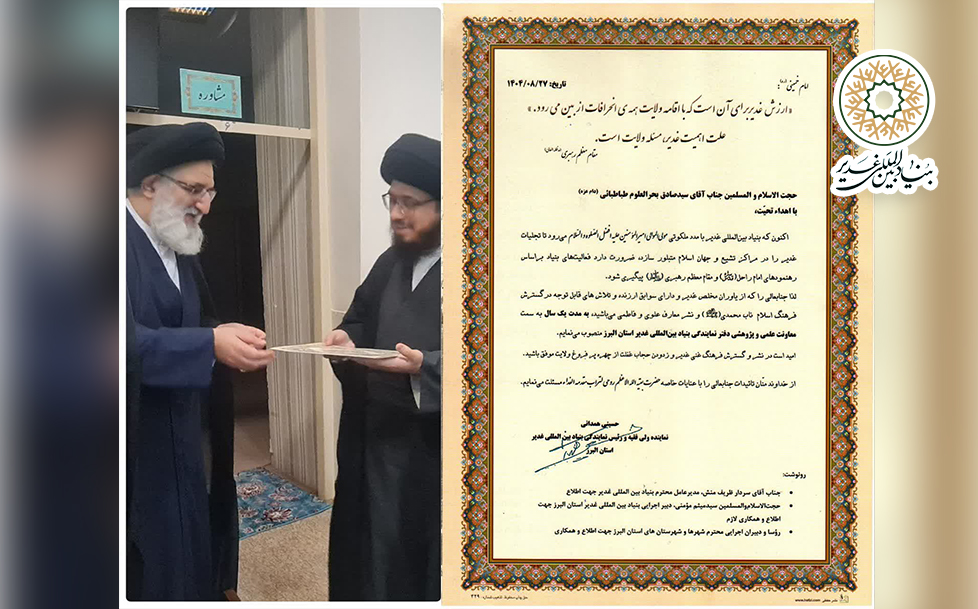 مشاوره
بنیاد بین‌المللی غدیر
امام خمینی (ره):
تاریخ: ۱۴۰۴/۰۸/۲۷
«ارزش غدیر برای آن است که با اقامه ولایت همه‌ی انحرافات از بین می رود.»
علت اهمیت غدیر، مسئله ولایت است.
مقام معظم رهبری
حجت الاسلام و المسلمین جناب آقای سیدصادق بحرالعلوم طباطبائی (دام عزه)
با اهداء تحیّت؛
اکنون که بنیاد بین‌المللی غدیر با مدد ملکوتی مولی‌الموالی امیرالمؤمنین علیه افضل الصلوه و السلام می‌رود تا تجلیات
غدیر را در مراکز تشیع و جهان اسلام متبلور سازد، ضرورت دارد فعالیت‌های بنیاد براساس
رهنمودهای امام راحل و مقام معظم رهبری پیگیری شود.
لذا جنابعالی را که از یاوران مخلص غدیر و دارای سوابق ارزنده و تلاش های قابل توجه در گسترش
فرهنگ اسلام ناب محمدی و نشر معارف علوی و فاطمی می‌باشید، به مدت یک سال به سمت
معاونت علمی و پژوهشی دفتر نمایندگی بنیاد بین‌المللی غدیر استان البرز منصوب می‌نمایم.
امید است در نشر و گسترش فرهنگ غنی غدیر و زدودن حجاب غفلت از چهره پر فروغ ولایت موفق باشید.
از خداوند منان تائیدات جنابعالی را با عنایات خاصه حضرت بقیه الله الاعظم روحی لتراب مقدمه الفداء مسئلت می‌نمایم.
حسینی همدانی
نماینده ولی فقیه و رئیس نمایندگی بنیاد بین المللی غدیر
استان البرز
رونوشت:
• جناب آقای سردار ظریف منش، مدیرعامل محترم بنیاد بین المللی غدیر جهت اطلاع
• حجت‌الاسلام‌والمسلمین سیدمیثم مؤمنی، دبیر اجرایی بنیاد بین المللی غدیر استان البرز جهت
اطلاع و همکاری لازم
• رؤسا و دبیران اجرایی محترم شهرها و شهرستان های استان البرز جهت اطلاع و همکاری